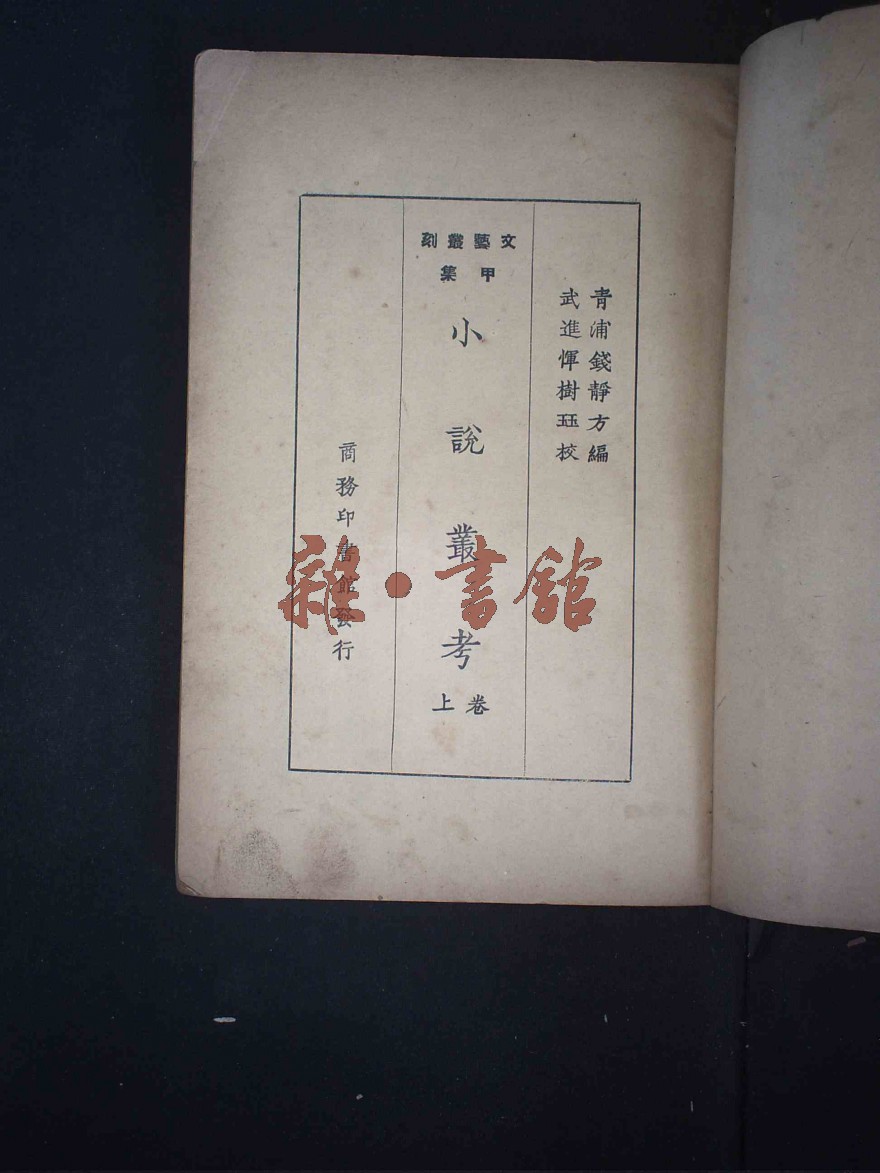 青浦錢靜方編
武進惲樹珏校
文藝叢刻
甲集
小說叢考
卷上
商務印書館發行
雜·書館